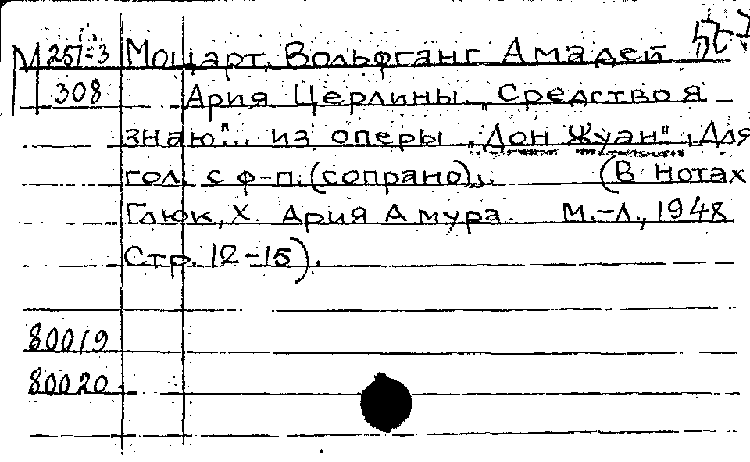 М 257-3 Моцарт, Вольфганг Амадей
308 Ария Церлины „Средство я
знаю"... из оперы „Дон Жуан". Для
гол. с ф-п. (сопрано).. (В нотах
Глюк, Х. Ария Амура. М.-Л., 1948
Стр. 12-15).
80019
80020